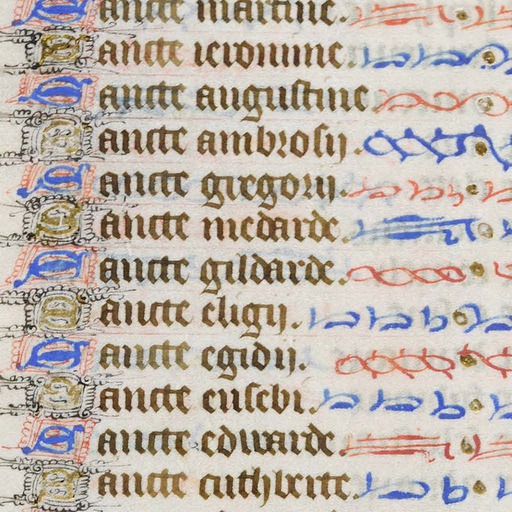 Sancte martine.
Sancte ieronime
Sancte augustine
Sancte ambrosij.
Sancte gregorij.
Sancte medarde.
Sancte gildarde.
Sancte eligij.
Sancte egidij.
Sancte eusebi.
Sancte edwarde.
Sancte cuthberte.